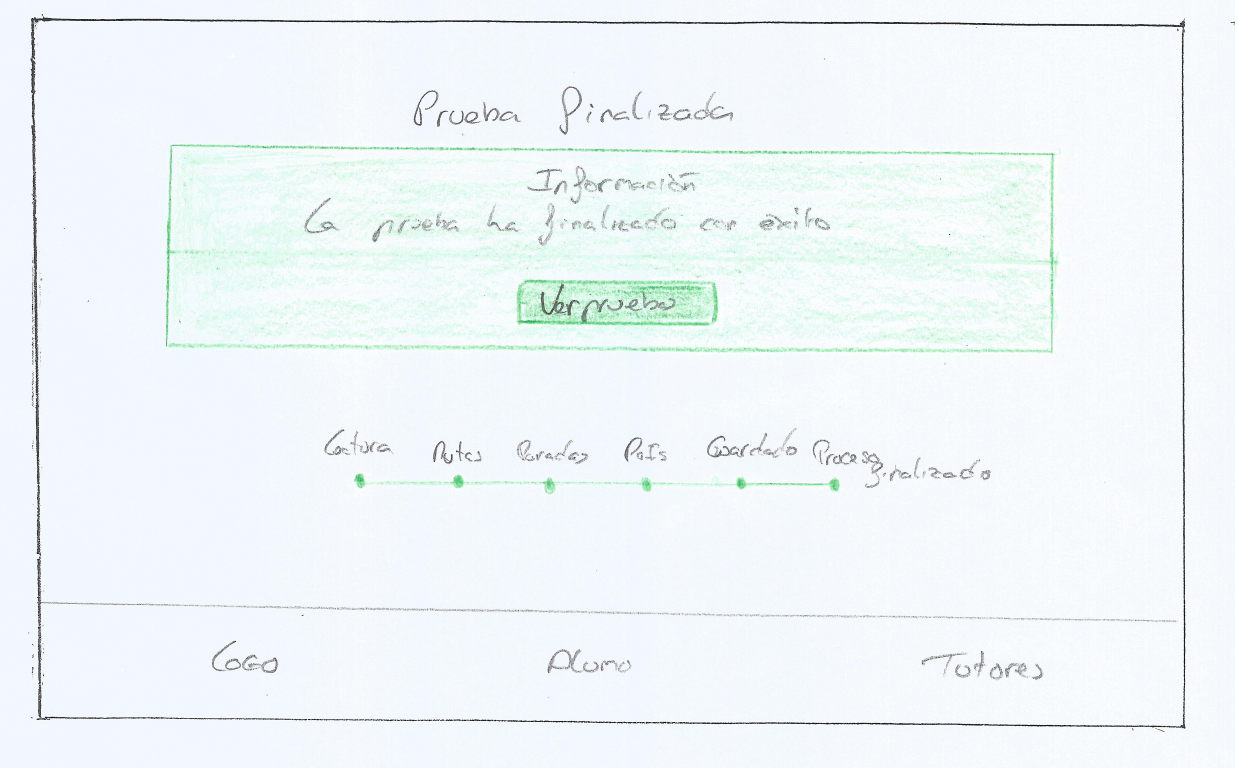 Prueba finalizada
Información
La prueba ha finalizado con éxito
Ver prueba
Lectura Rutas Paradas País Guardado Proceso
finalizado
LOGO Alumno Tutores